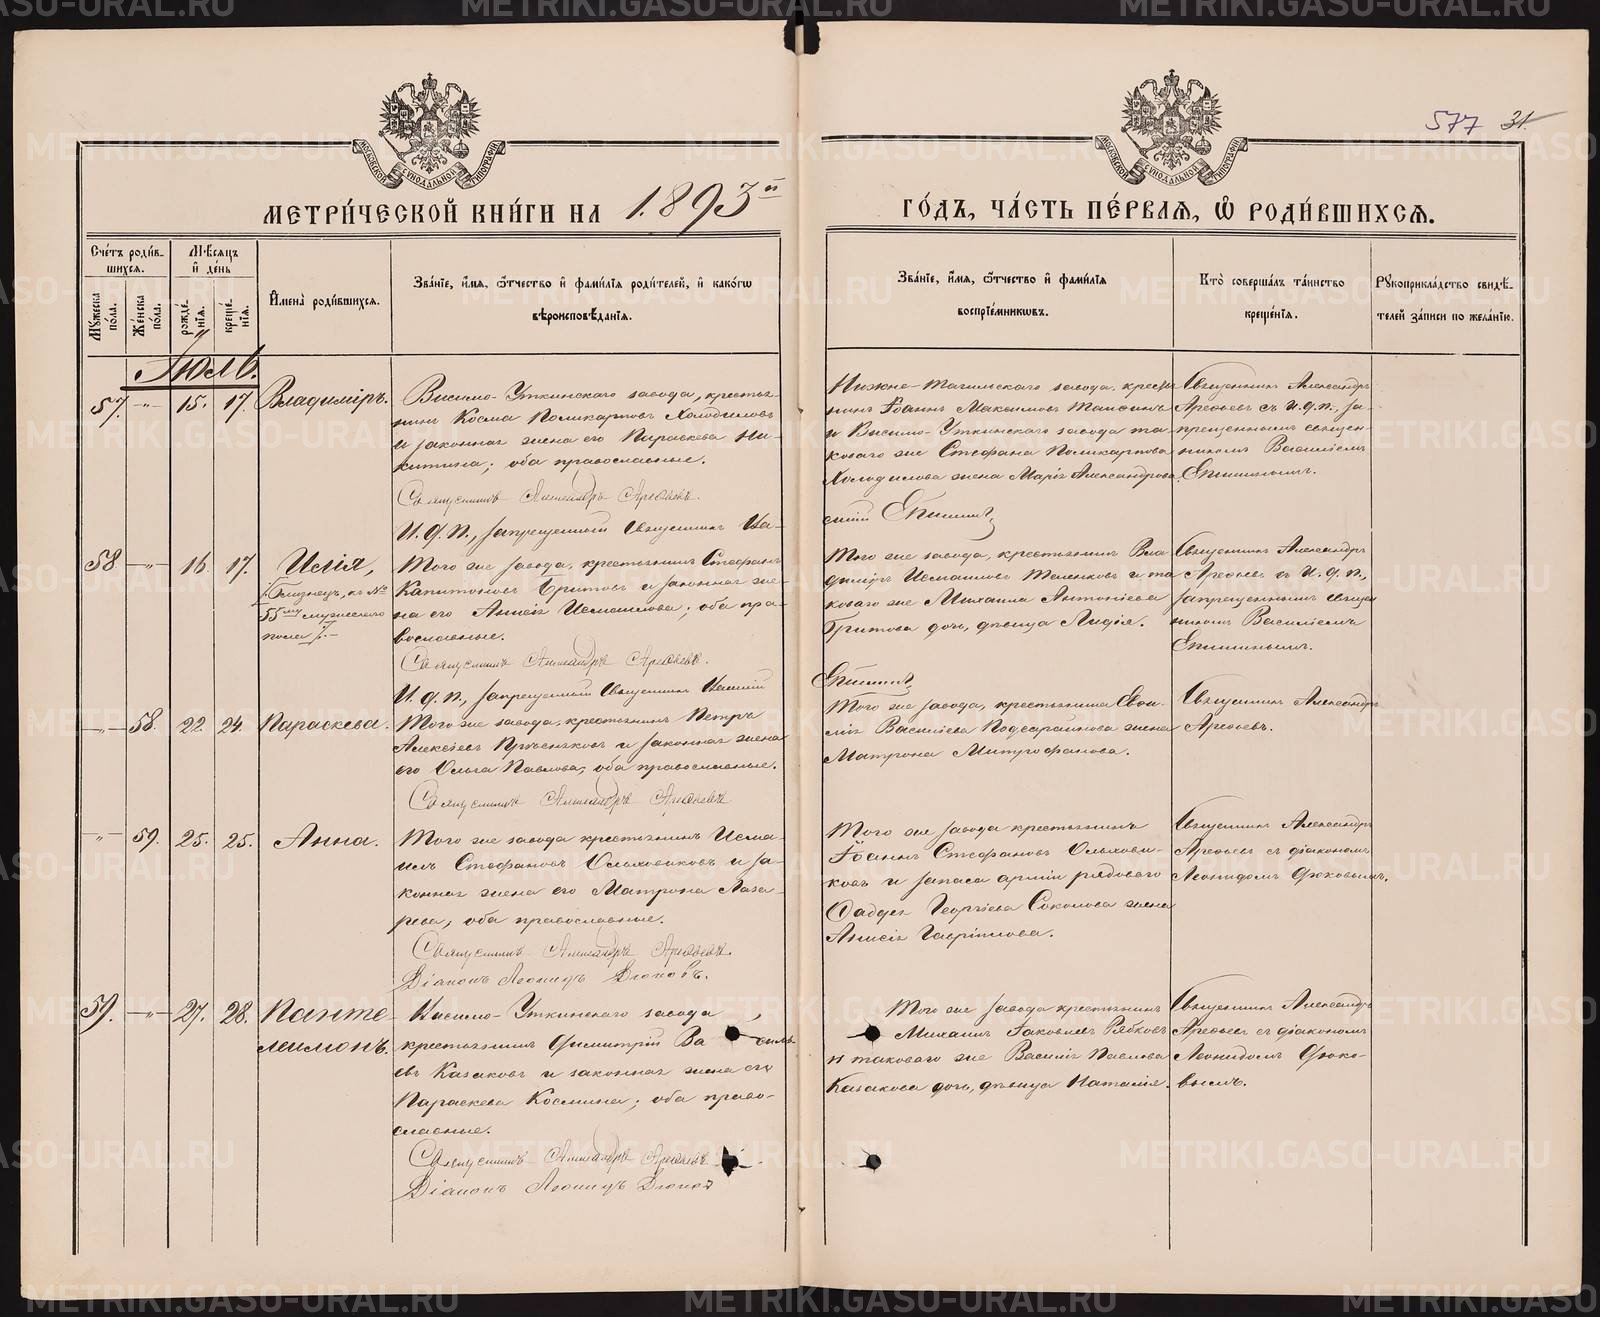 577 31
МЕТРИ́ЧЕСКОЙ КНИ́ГИ НА 1893й ГО́ДЪ, ЧА́СТЬ ПЕ́РВАЯ, Ѡ҆ РОДИ́ВШИХСЯ.
Сче́тъ роди́вшихся.
Мꙋ́жеска по́ла.
Же́нска по́ла.
Мѣ́сяцъ и҆ де́нь
рожде́нїя.
креще́нїя.
И҆мена̀ роди́вшихся.
Зва́нїе, и҆́мя, ѻ҆́тчество и҆ фами́лїя роди́телей, и҆ како́гѡ вѣроисповѣ́данїя.
Зва́нїе, и҆́мя, ѻ҆́тчество и҆ фами́лїя воспрїе́мникѡвъ.
Кто̀ соверша́лъ та́инство креще́нїя.
Рꙋкоприкла́дство свидѣ́телей за́писи по жела́нїю.
Іюль.
57. -„- 15. 17. Владиміръ.
Висимо-Уткинскаго завода, кресть-
нинъ Косма Поликарповъ Холодиловъ
и законная жена его Параскева Ни-
китина; оба православные.
Священникъ Александръ Арефьевъ.
И. д. п., запрещенный Священникъ Ва-
Нижне-Тагильскаго завода, кресть
нинъ Іоаннъ Максимовъ
и Висимо-Уткинскаго завода та-
коваго же Стефана Поликарпова
Холодилова жена Марія Александрова.
силій Епишинъ
Священникъ Александръ
Арефьевъ съ и. д. п., за-
прещеннымъ священ-
никомъ Василіемъ
Епишинымъ.
58 -„- 16. 17. Илія,
(Близнецъ, къ №
55му мужескаго
пола).-
Того же завода, крестьянинъ Стефанъ
Капитоновъ Бритовъ и законная же-
на его Анисія Исмаилова; оба пра-
вославные.
Священникъ Александръ Арефьевъ.
И. д. п., запрещенный Священникъ Василій
Того же завода, крестьянинъ Вла
диміръ Исмаиловъ Теленковъ и та
коваго же Михаила Антоніева
Бритова дочь, дѣвица Лидія.
Епишинъ
Священникъ Александръ
Арефьевъ съ И. д. п.,
запрещеннымъ священ
никомъ Василіемъ
Епишинымъ.
-„- 58. 22. 24. Параскева.
Того же завода, крестьянинъ Петръ
Алексіевъ и законная жена
его Ольга Павлова, оба православные.
Священникъ Александръ Арефьевъ
Того же завода, крестьянина
Василіева жена
Матрона Митрофанова.
Священникъ Александръ
Арефьевъ.
-„- 59. 25. 25. Анна.
Того же завода крестьянинъ Исма-
илъ Стефановъ Ольховиковъ и за-
конная жена его Матрона Лаза-
рева; оба православные.
Священникъ Александръ Арефьевъ.
Діаконъ Леонидъ Дюковъ.
Того же завода крестьянинъ
Іоаннъ Стефановъ Ольхови-
ковъ и запаса арміи рядового
Фаддея Георгіева Соколова жена
Анисія Гавріилова.
Священникъ Александръ
Арефьевъ съ діакономъ
Леонидомъ Дюковымъ.
59. -„- 27. 28. Панте-
леимонъ.
Висимо-Уткинскаго завода
крестьянинъ Димитрій Ва силь
евъ Казаковъ и законная жена его
Параскева Космина; оба право-
славные.
Священникъ Александръ Арефьевъ
Діаконъ Леонидъ Дюковъ
Того же завода крестьянинъ
Михаилъ Іаковлевъ Рябковъ
и таковаго же Василія Павлова
Казакова дочь, дѣвица Наталія.
Священникъ Александръ
Арефьевъ съ діакономъ
Леонидомъ Дюко-
вымъ.
METRIKI.GASO-URAL.RU